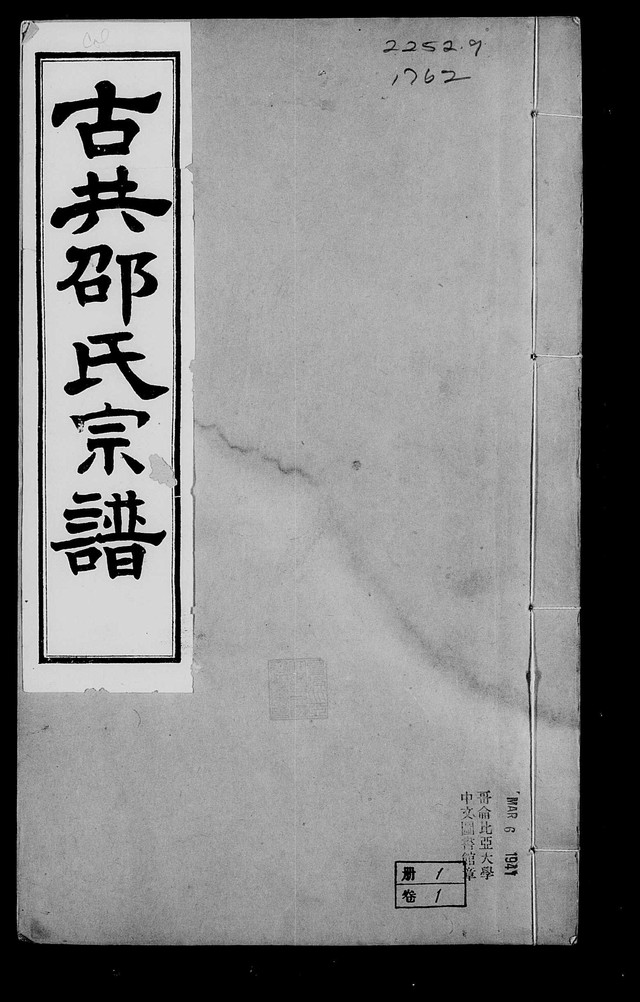 古共邵氏宗譜
2252.9
1762
哥侖比亞大學
中文圖書館章
MAR 6 1941
册 1
卷 1